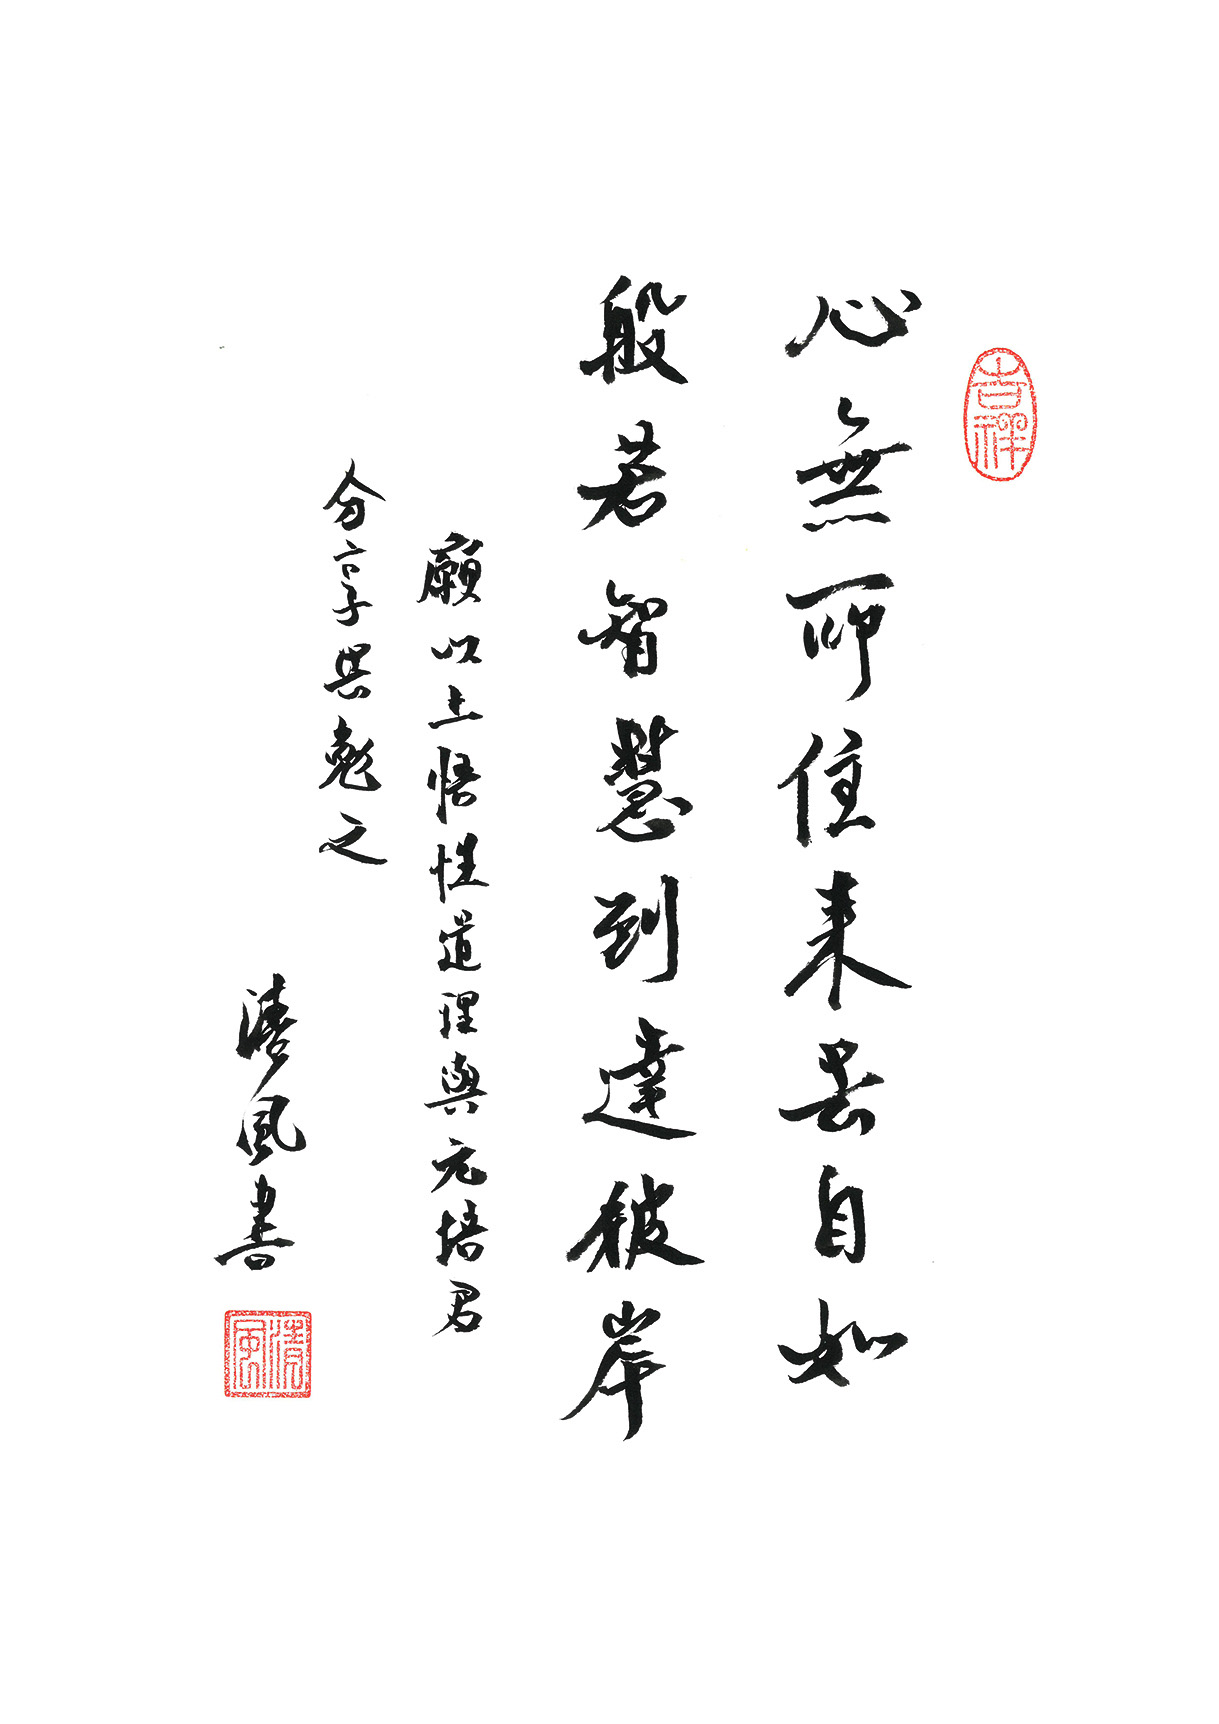 吉祥
心無所住来去自如
般若智慧到達彼岸
願以上悟性道理與元培君
分享與勉之
清風書
清風